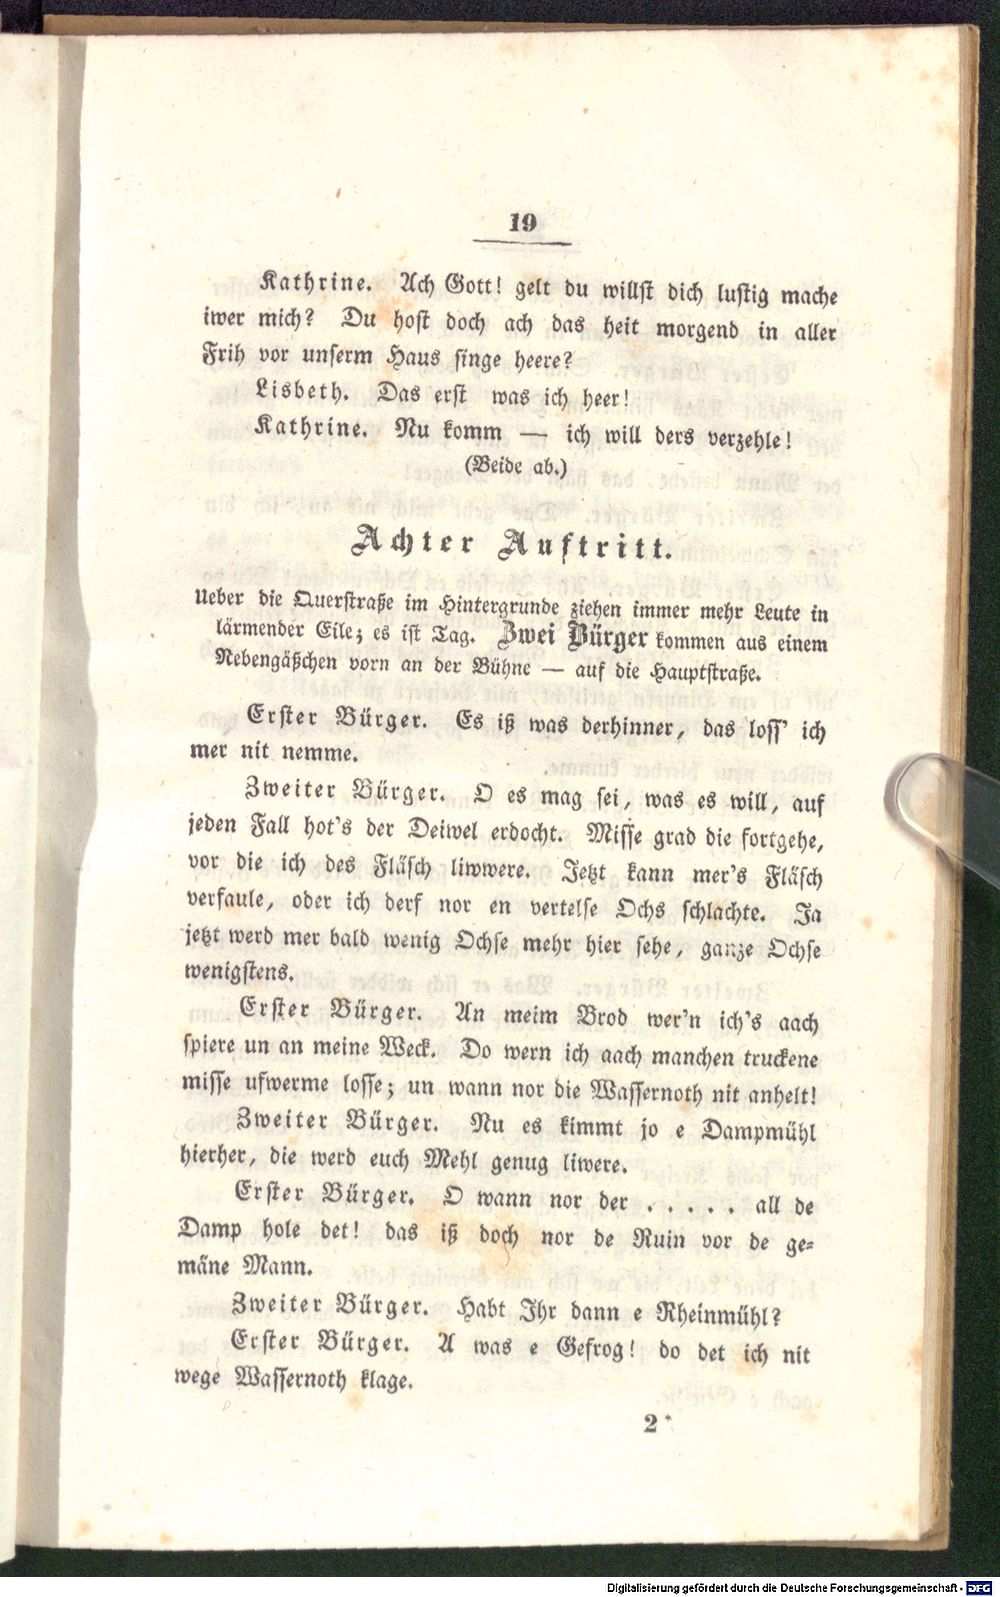 19
Kathrine. Ach Gott! gelt du willst dich lustig mache
iwer mich? Du host doch ach das heit morgend in aller
Frih vor unserm Haus singe heere?
Lisbeth. Das erst was ich heer!
Kathrine. Nu komm — ich will ders verzehle!
(Beide ab.)
Achter Auftritt.
Ueber die Querstraße im Hintergrunde ziehen immer mehr Leute in
lärmender Eile; es ist Tag. Zwei Bürger kommen aus einem
Nebengäßchen vorn an der Bühne — auf die Hauptstraße.
Erster Bürger. Es iß was derhinner, das loss' ich
mer nit nemme.
Zweiter Bürger. O es mag sei, was es will, auf
jeden Fall hot's der Deiwel erdocht. Misse grad die fortgehe,
vor die ich des Fläsch liwwere. Jetzt kann mer's Fläsch
verfaule, oder ich derf nor en vertelse Ochs schlachte. Ja
jetzt werd mer bald wenig Ochse mehr hier sehe, ganze Ochse
wenigstens.
Erster Bürger. An meim Brod wer'n ich's aach
spiere un an meine Weck. Do wern ich aach manchen truckene
misse ufwerme losse; un wann nor die Wassernoth nit anhelt!
Zweiter Bürger. Nu es kimmt jo e Dampmühl
hierher, die werd euch Mehl genug liwere.
Erster Bürger. O wann nor der . . . . . all de
Damp hole det! das iß doch nor de Ruin vor de ge-
mäne Mann.
Zweiter Bürger. Habt Ihr dann e Rheinmühl?
Erster Bürger. A was e Gefrog! do det ich nit
wege Wassernoth klage.
2*
Digitalisierung gefördert durch die Deutsche Forschungsgemeinschaft - DFG